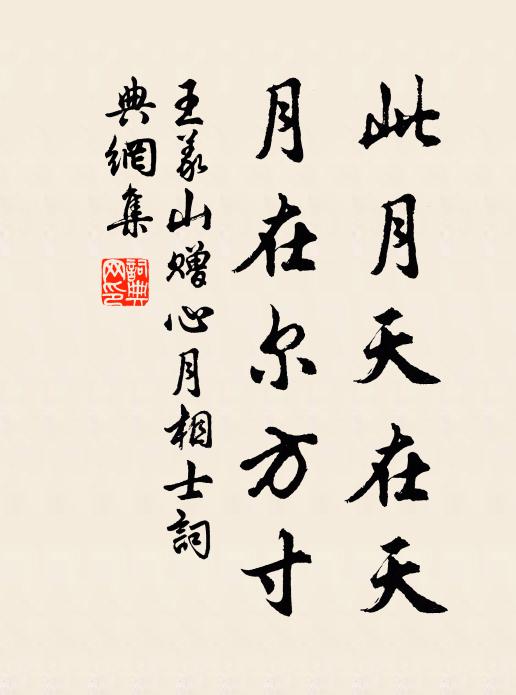 此月天在天
月在尔方寸
王义山赠心月相士詞
典網集
詞典网印